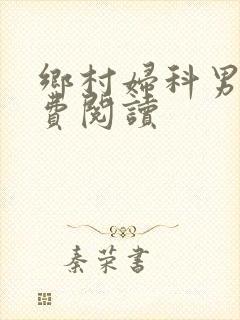 鄉村婦科男
費閱讀
秦荣書